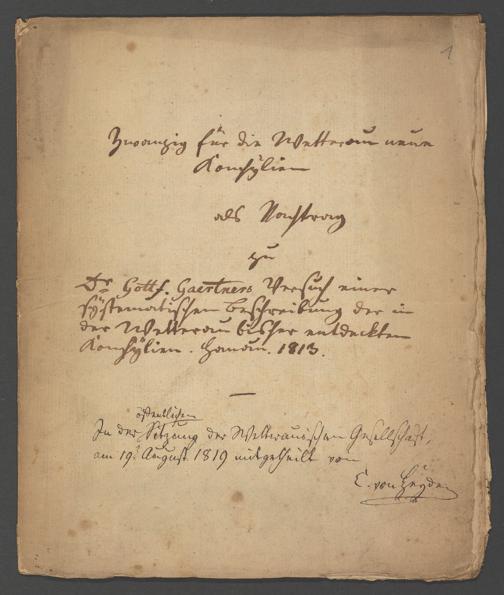 1
Zwanzig für die Wetterau neue
Konchÿlien
als Nachtrag
zu
Dr Gottf. Gaertners Versuch einer
sÿstematischen Beschreibung der in
der Wetterau bisher entdeckten
Konchÿlien. Hanau. 1813.
—
öffentlichen
In der Sitzung der Wetterauischen Gesellschaft,
am 19. August 1819 mitgetheilt von
C. von Heÿden